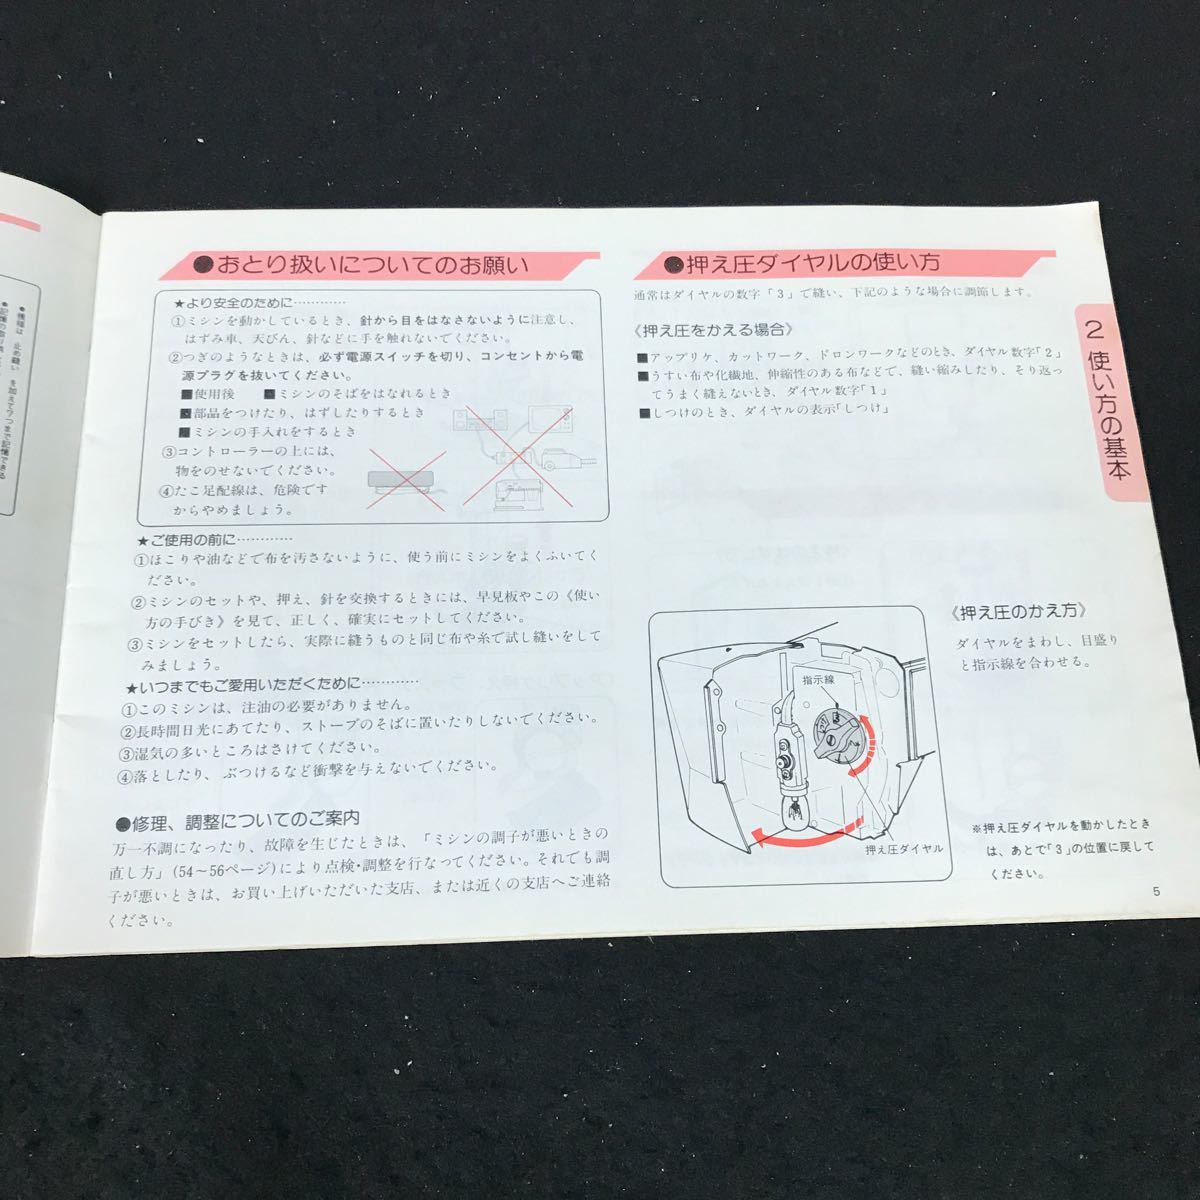 ●おとり扱いについてのお願い
★より安全のために…………
①ミシンを動かしているとき、針から目をはなさないように注意し、
はずみ車、天びん、針などに手を触れないでください。
②つぎのようなときは、必ず電源スイッチを切り、コンセントから電
源プラグを抜いてください。
■使用後 ■ミシンのそばをはなれるとき
■部品をつけたり、はずしたりするとき
■ミシンの手入れをするとき
③コントローラーの上には、
物をのせないでください。
④たこ足配線は、危険です
からやめましょう。
★ご使用の前に…………
①ほこりや油などで布を汚さないように、使う前にミシンをよくふいてく
ださい。
②ミシンのセットや、押え、針を交換するときには、早見板やこの《使い
方の手びき》を見て、正しく、確実にセットしてください。
③ミシンをセットしたら、実際に縫うものと同じ布や糸で試し縫いをして
みましょう。
★いつまでもご愛用いただくために…………
①このミシンは、注油の必要がありません。
②長時間日光にあてたり、ストーブのそばに置いたりしないでください。
③湿気の多いところはさけてください。
④落としたり、ぶつけるなど衝撃を与えないでください。
●修理、調整についてのご案内
万一不調になったり、故障を生じたときは、「ミシンの調子が悪いときの
直し方」(54～56ページ)により点検・調整を行なってください。それでも調
子が悪いときは、お買い上げいただいた支店、または近くの支店へご連絡
ください。
●押え圧ダイヤルの使い方
通常はダイヤルの数字「3」で縫い、下記のような場合に調節します。
《押え圧をかえる場合》
■アップリケ、カットワーク、ドロンワークなどのとき、ダイヤル数字「2」
■うすい布や化繊地、伸縮性のある布などで、縫い縮みしたり、そり返っ
てうまく縫えないとき、ダイヤル数字「1」
■しつけのとき、ダイヤルの表示「しつけ」
指示線
押え圧ダイヤル
《押え圧のかえ方》
ダイヤルをまわし、目盛り
と指示線を合わせる。
※押え圧ダイヤルを動かしたとき
は、あとで「3」の位置に戻して
ください。
5
2 使い方の基本